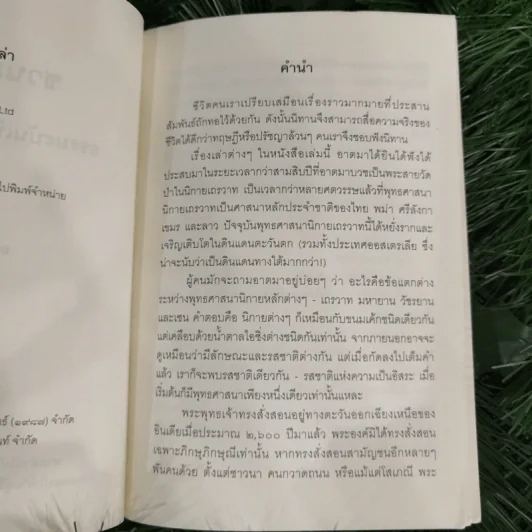 ล่า
Ltd
ไปพิมพ์จำหน่าย
(๑๙๘๗) จำกัด
จำกัด
คำนำ
ชีวิตคนเราเปรียบเสมือนเรื่องราวมากมายที่ประสาน
สัมพันธ์ถักทอไว้ด้วยกัน ดังนั้นนิทานจึงสามารถสื่อความจริงของ
ชีวิตได้ดีกว่าทฤษฎีหรือปรัชญาล้วนๆ คนเราจึงชอบฟังนิทาน
เรื่องเล่าต่างๆ ในหนังสือเล่มนี้ อาตมาได้ยินได้ฟังได้
ประสบมาในระยะเวลากว่าสามสิบปีที่อาตมาบวชเป็นพระสายวัด
ป่าในนิกายเถรวาท เป็นเวลากว่าหลายศตวรรษแล้วที่พุทธศาสนา
นิกายเถรวาทเป็นศาสนาหลักประจำชาติของไทย พม่า ศรีลังกา
เขมร และลาว ปัจจุบันพุทธศาสนานิกายเถรวาทนี้ได้หยั่งรากและ
เจริญเติบโตในดินแดนตะวันตก (รวมทั้งประเทศออสเตรเลีย ซึ่ง
น่าจะนับว่าเป็นดินแดนทางใต้มากกว่า!)
ผู้คนมักจะถามอาตมาอยู่บ่อยๆ ว่า อะไรคือข้อแตกต่าง
ระหว่างพุทธศาสนานิกายหลักต่างๆ - เถรวาท มหายาน วัชรยาน
และเซน คำตอบคือ นิกายต่างๆ ก็เหมือนกับขนมเค้กชนิดเดียวกัน
แต่เคลือบด้วยน้ำตาลไอซิ่งต่างชนิดกันเท่านั้น จากภายนอกอาจจะ
ดูเหมือนว่ามีลักษณะและรสชาติต่างกัน แต่เมื่อกัดลงไปเต็มคำ
แล้ว เราก็จะพบรสชาติเดียวกัน - รสชาติแห่งความเป็นอิสระ เมื่อ
เริ่มต้นก็มีพุทธศาสนาเพียงหนึ่งเดียวเท่านั้นแหละ
พระพุทธเจ้าทรงสั่งสอนอยู่ทางตะวันออกเฉียงเหนือของ
อินเดียเมื่อประมาณ ๒,๖๐๐ ปีมาแล้ว พระองค์มิได้ทรงสั่งสอน
เฉพาะภิกษุภิกษุณีเท่านั้น หากทรงสั่งสอนสามัญชนอีกหลายๆ
พันคนด้วย ตั้งแต่ชาวนา คนกวาดถนน หรือแม้แต่โสเภณี พระ